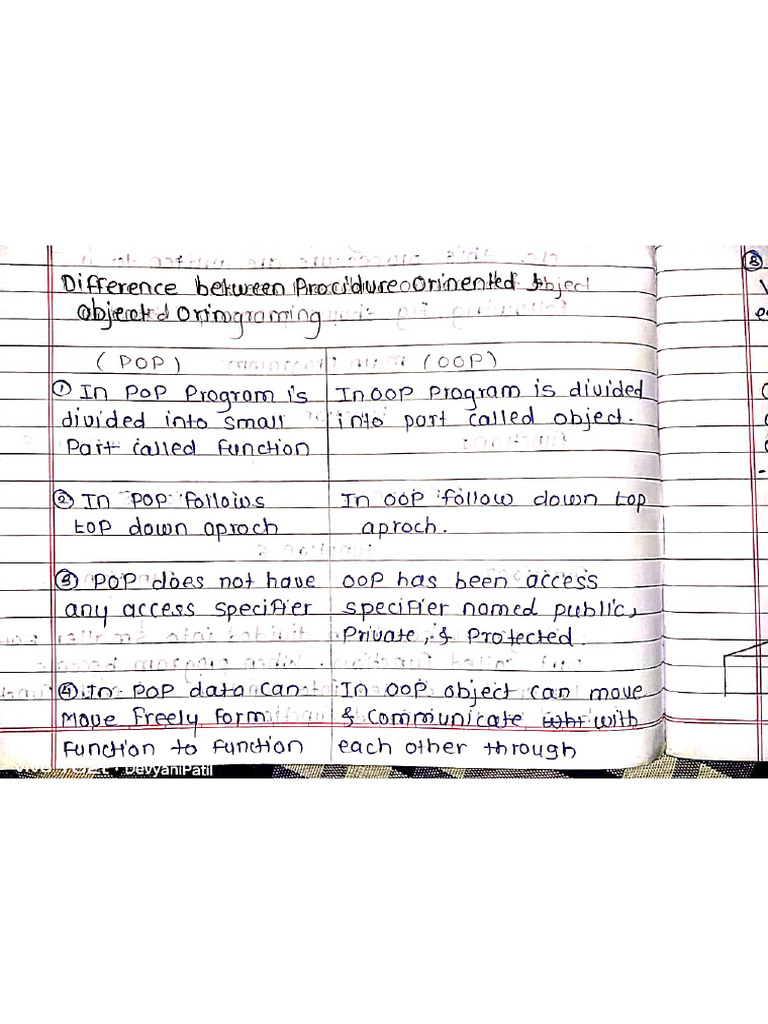 Difference between Procidure Orinented Object
Objected Orimgraming
(POP) (OOP)
① In POP Program is
divided into small
Part called function
In OOP Program is divided
into part called object.
② In POP follows
top down aproch
In OOP follow down top
aproch.
③ POP does not have
any access specifier
OOP has been access
specifier named public,
Private, & Protected.
④ In POP data can
Move Freely form
Function to Function
In OOP object can move
& communicate with
each other through
DevyaniPatil
③